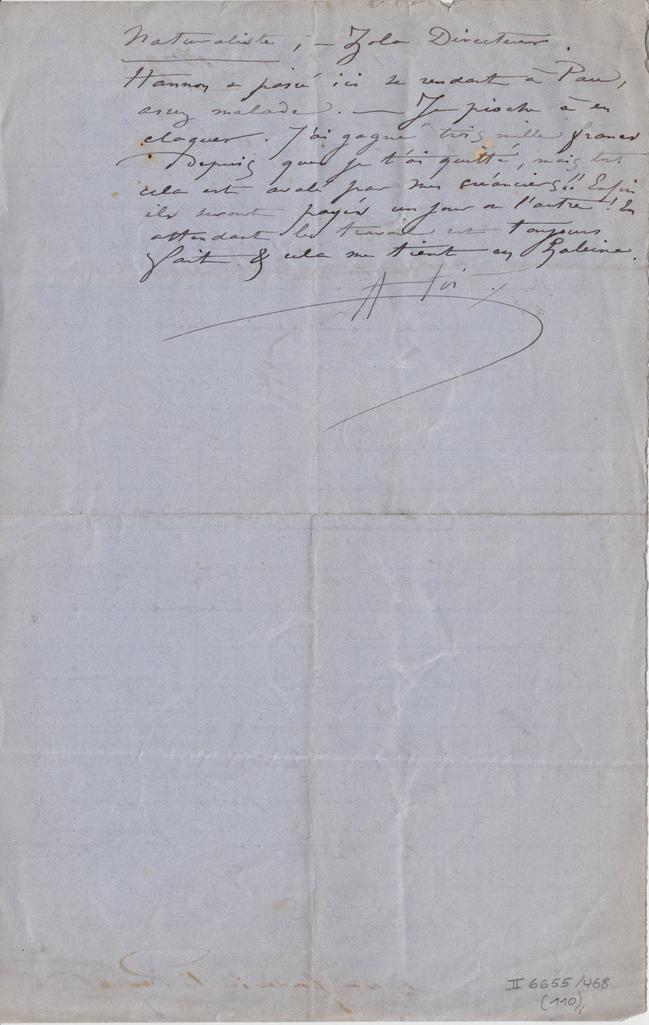 Naturaliste, – Zola Directeur.
Hannon a passé ici se rendant à Pau,
assez malade. — Je pioche à en
claquer. J'ai gagné trois mille francs
depuis que je t'ai quitté, mais tout
cela est avalé par mes créanciers!! Enfin
ils seront payés un jour ou l'autre! En
attendant le travail est toujours
fait & cela me tient en haleine.
A toi
II 6655/468
(110)